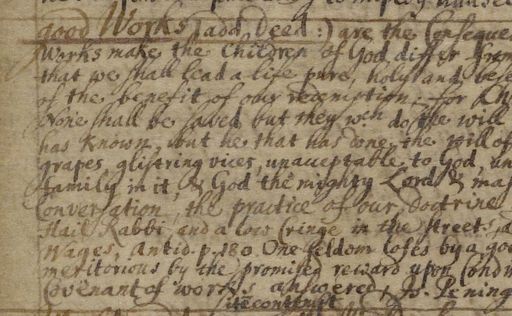 good Works (add Deed:) are the Conseque
Works make the Children of God differ from
that we shall lead a life pure, holy and bese
of the benefit of our redemption. for Ch
None shall be saved but they wch do the will
has known, but he that has done the will of
grapes, glistring vices, unacceptable to God, un
family in it, & God the mighty Lord &
Conversation, the practice of our doctrine
Hail Rabbi, and a low cringe in the streets, a
Wages, Antid. p. 180. One seldom loses by a goo
meritorious by the promised reward upon
Covenant of works answered, Js. Pening